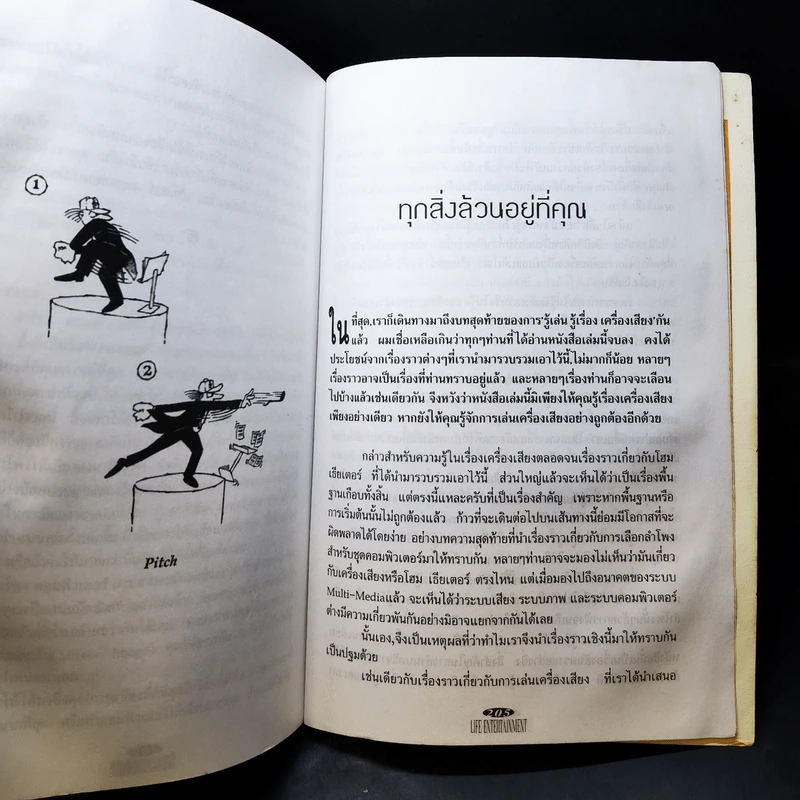 1
2
Pitch
ทุกสิ่งล้วนอยู่ที่คุณ
ในที่สุด,เราก็เดินทางมาถึงบทสุดท้ายของการ'รู้เล่น รู้เรื่อง เครื่องเสียง'กัน
แล้ว ผมเชื่อเหลือเกินว่าทุกๆท่านที่ได้อ่านหนังสือเล่มนี้จบลง คงได้
ประโยชน์จากเรื่องราวต่างๆที่เรานำมารวบรวมเอาไว้นี้,ไม่มากก็น้อย หลายๆ
เรื่องราวอาจเป็นเรื่องที่ท่านทราบอยู่แล้ว และหลายๆเรื่องท่านก็อาจจะเลือน
ไปบ้างแล้วเช่นเดียวกัน จึงหวังว่าหนังสือเล่มนี้มิเพียงให้คุณรู้เรื่องเครื่องเสียง
เพียงอย่างเดียว หากยังให้คุณรู้จักการเล่นเครื่องเสียงอย่างถูกต้องอีกด้วย
กล่าวสำหรับความรู้ในเรื่องเครื่องเสียงตลอดจนเรื่องราวเกี่ยวกับโฮม
เธียเตอร์ ที่ได้นำมารวบรวมเอาไว้นี้ ส่วนใหญ่แล้วจะเห็นได้ว่าเป็นเรื่องพื้น
ฐานเกือบทั้งสิ้น แต่ตรงนี้แหละครับที่เป็นเรื่องสำคัญ เพราะหากพื้นฐานหรือ
การเริ่มต้นนั้นไม่ถูกต้องแล้ว ก้าวที่จะเดินต่อไปบนเส้นทางนี้ย่อมมีโอกาสที่จะ
ผิดพลาดได้โดยง่าย อย่างบทความสุดท้ายที่นำเรื่องราวเกี่ยวกับการเลือกลำโพง
สำหรับชุดคอมพิวเตอร์มาให้ทราบกัน หลายๆท่านอาจจะมองไม่เห็นว่ามันเกี่ยว
กับเครื่องเสียงหรือโฮม เธียเตอร์ ตรงไหน แต่เมื่อมองไปถึงอนาคตของระบบ
Multi-Mediaแล้ว จะเห็นได้ว่าระบบเสียง ระบบภาพ และระบบคอมพิวเตอร์
ต่างมีความเกี่ยวพันกันอย่างมิอาจแยกจากกันได้เลย
นั้นเอง,จึงเป็นเหตุผลที่ว่าทำไมเราจึงนำเรื่องราวเชิงนี้มาให้ทราบกัน
เป็นปฐมด้วย
เช่นเดียวกับเรื่องราวเกี่ยวกับการเล่นเครื่องเสียง ที่เราได้นำเสนอ
205
LIFE ENTERTAINMENT